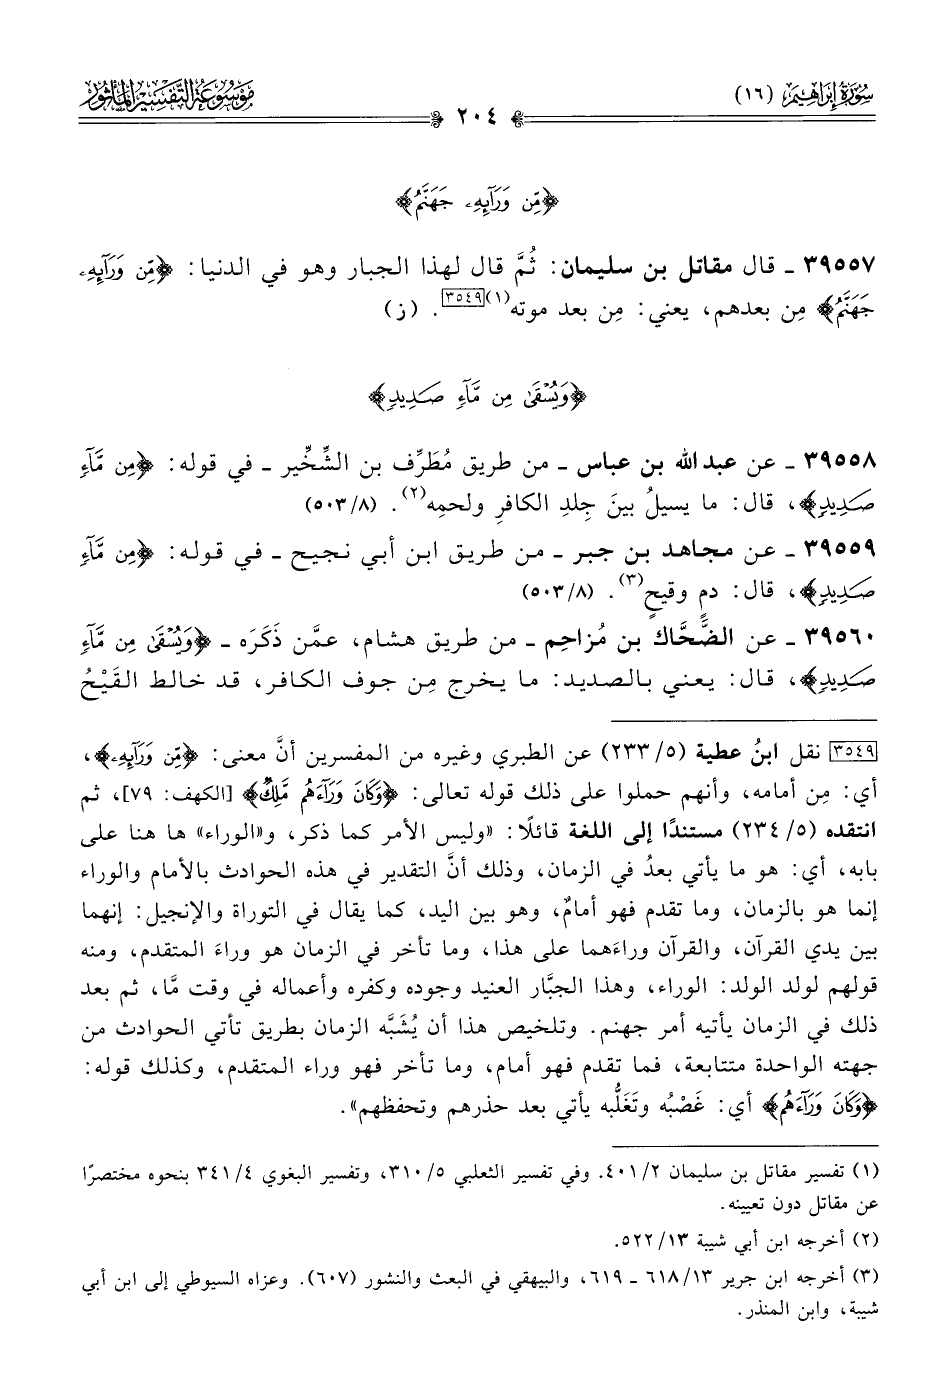 سُورَةُ إِبْرَاهِيم (١٦)
٢٠٤
مَوْسُوعَة التَّفْسِيرِ المَأْثُور
﴿مِّن وَرَآئِهِۦ جَهَنَّمُ﴾
٣٩٥٥٧ ـ قال مقاتل بن سليمان: ثُمَّ قال لهذا الجبار وهو في الدنيا: ﴿مِّن وَرَآئِهِۦ
جَهَنَّمُ﴾ مِن بعدهم، يعني: مِن بعد موته(١)[٣٥٤٩]. (ز)
﴿وَيُسْقَىٰ مِن مَّآءٍ صَدِيدٍ﴾
٣٩٥٥٨ ـ عن عبد الله بن عباس ـ من طريق مُطَرِّف بن الشِّخِّير ـ في قوله: ﴿مِن مَّآءٍ
صَدِيدٍ﴾، قال: ما يسيلُ بينَ جِلدِ الكافرِ ولحمِه(٢). (٨/ ٥٠٣)
٣٩٥٥٩ ـ عن مجاهد بن جبر ـ من طريق ابن أبي نجيح ـ في قوله: ﴿مِن مَّآءٍ
صَدِيدٍ﴾، قال: دمٍ وقيحٍ(٣). (٨/ ٥٠٣)
٣٩٥٦٠ ـ عن الضَّحَّاك بن مُزاحِم ـ من طريق هشام، عمَّن ذَكَرَه ـ ﴿وَيُسْقَىٰ مِن مَّآءٍ
صَدِيدٍ﴾، قال: يعني بالصديد: ما يخرج مِن جوف الكافر، قد خالط القَيْحُ
[٣٥٤٩] نقل ابنُ عطية (٥/ ٢٣٣) عن الطبري وغيره من المفسرين أنَّ معنى: ﴿مِّن وَرَآئِهِۦ﴾،
أي: مِن أمامه، وأنهم حملوا على ذلك قوله تعالى: ﴿وَكَانَ وَرَآءَهُم مَّلِكٌ﴾ [الكهف: ٧٩]، ثم
انتقده (٥/ ٢٣٤) مستندًا إلى اللغة قائلًا: «وليس الأمر كما ذكر، و«الوراء» ها هنا على
بابه، أي: هو ما يأتي بعدُ في الزمان، وذلك أنَّ التقدير في هذه الحوادث بالأمام والوراء
إنما هو بالزمان، وما تقدم فهو أمامٌ، وهو بين اليد، كما يقال في التوراة والإنجيل: إنهما
بين يدي القرآن، والقرآن وراءَهما على هذا، وما تأخر في الزمان هو وراءَ المتقدم، ومنه
قولهم لولد الولد: الوراء، وهذا الجبَّار العنيد وجوده وكفره وأعماله في وقت مَّا، ثم بعد
ذلك في الزمان يأتيه أمر جهنم. وتلخيص هذا أن يُشَبَّه الزمان بطريق تأتي الحوادث من
جهته الواحدة متتابعة، فما تقدم فهو أمام، وما تأخر فهو وراء المتقدم، وكذلك قوله:
﴿وَكَانَ وَرَآءَهُم﴾ أي: غَصْبُه وتَغَلُّبه يأتي بعد حذرهم وتحفظهم».
(١) تفسير مقاتل بن سليمان ٢/ ٤٠١. وفي تفسير الثعلبي ٥/ ٣١٠، وتفسير البغوي ٤/ ٣٤١ بنحوه مختصرًا
عن مقاتل دون تعيينه.
(٢) أخرجه ابن أبي شيبة ١٣/ ٥٢٢.
(٣) أخرجه ابن جرير ١٣/ ٦١٨ ـ ٦١٩، والبيهقي في البعث والنشور (٦٠٧). وعزاه السيوطي إلى ابن أبي
شيبة، وابن المنذر.